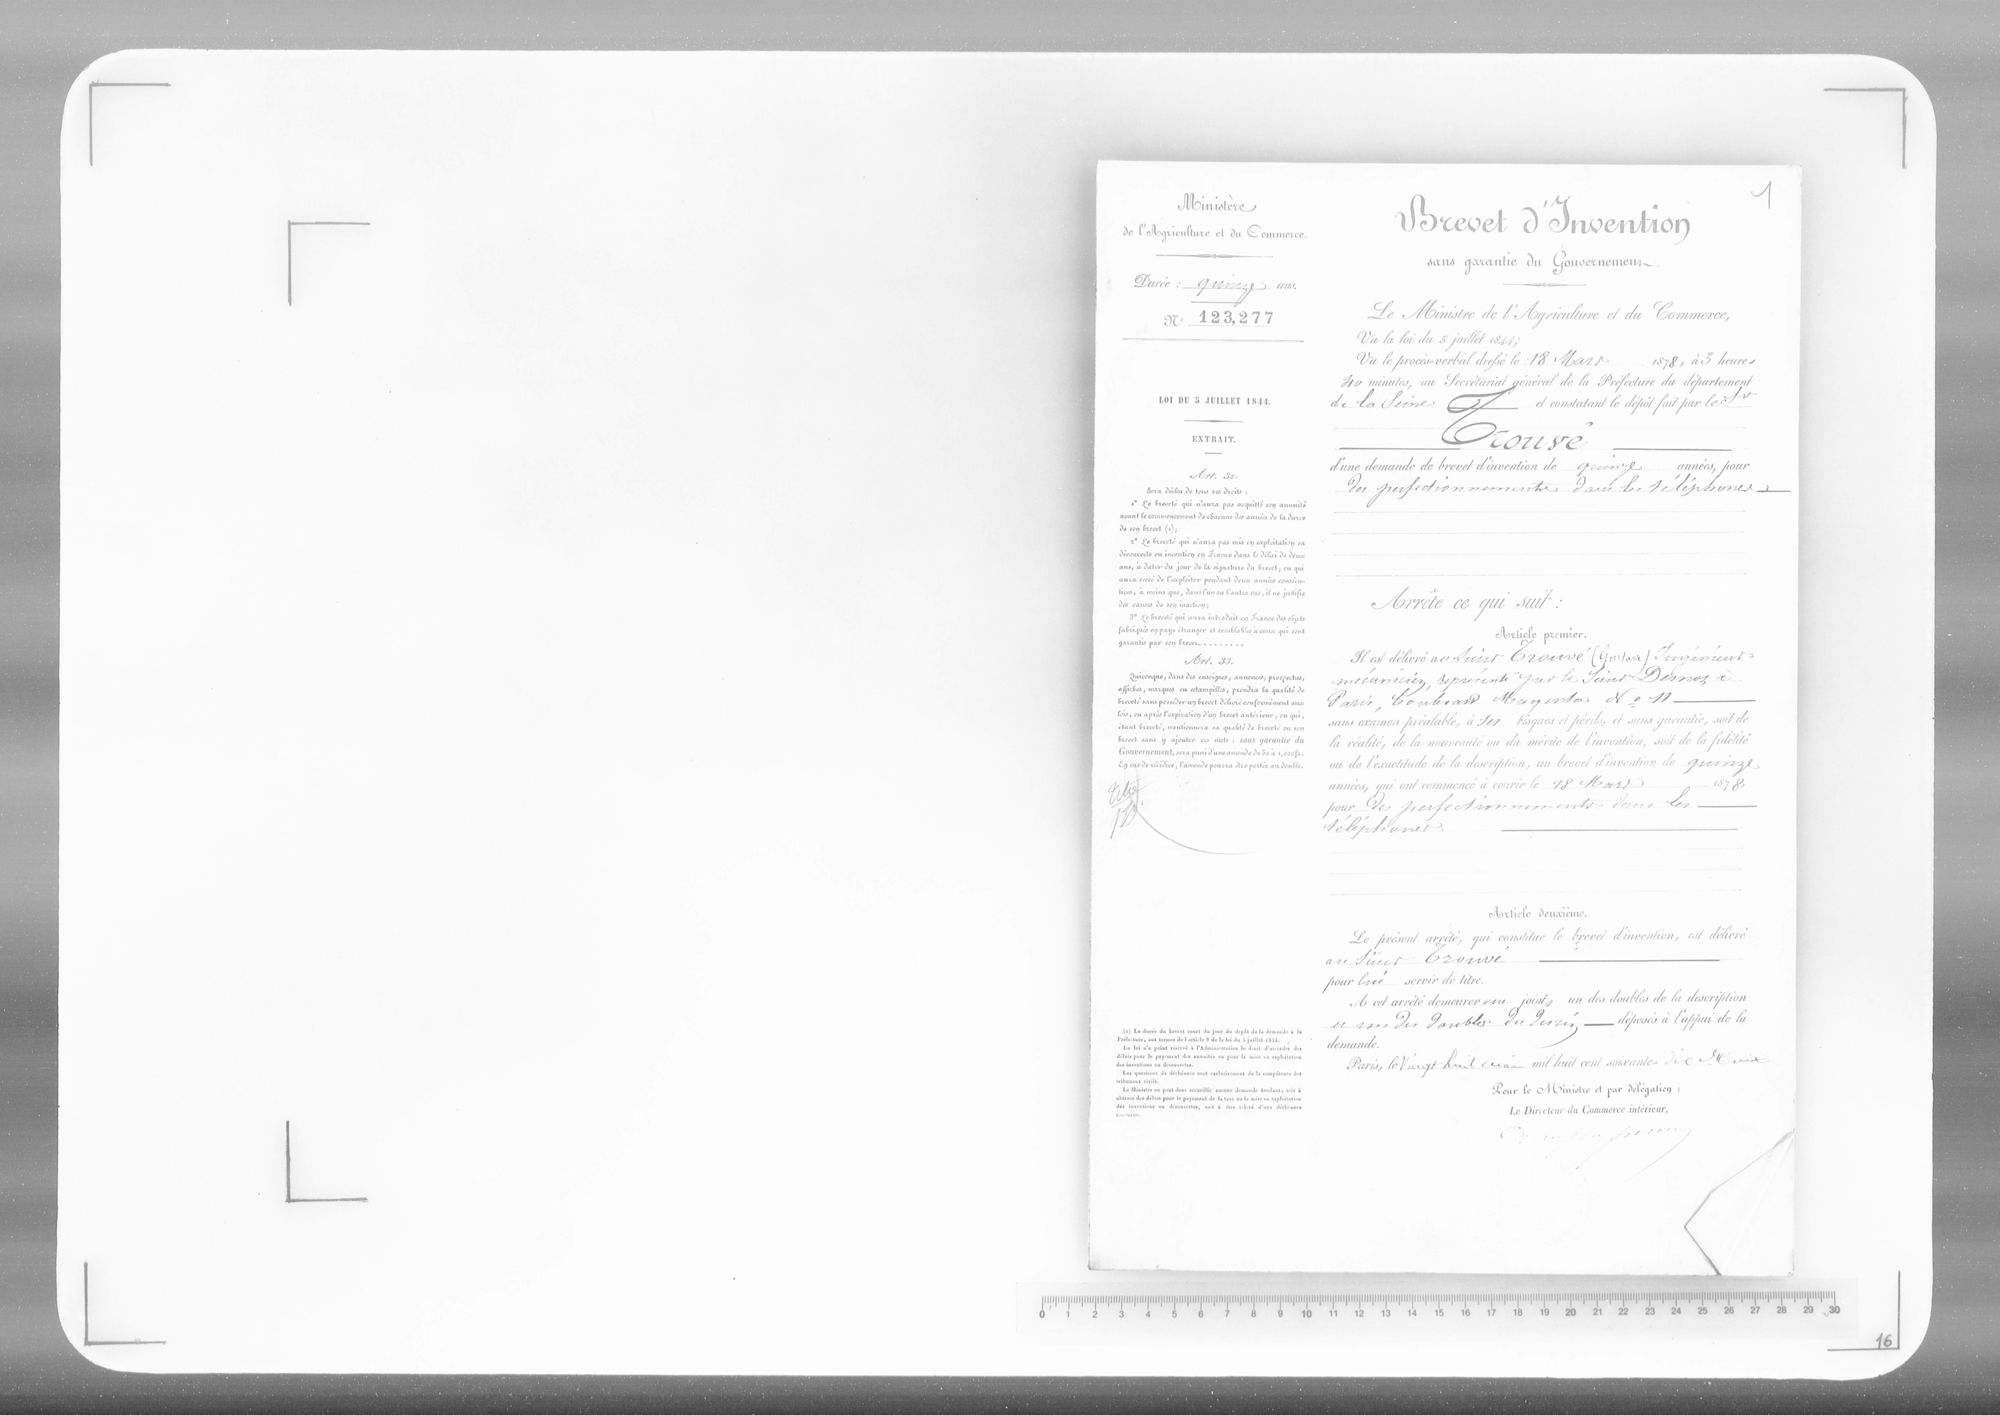 1
Ministère
de l'Agriculture et du Commerce.
Durée : quinze ans.
N° 123,277
LOI DU 5 JUILLET 1844.
EXTRAIT.
Art. 32.
Sera déchu de tous ses droits :
1° Le breveté qui n'aura pas acquitté son annuité
avant le commencement de chacune des années de la durée
de son brevet (1);
2° Le breveté qui n'aura pas mis en exploitation sa
découverte ou invention en France dans le délai de deux
ans, à dater du jour de la signature du brevet, ou qui
aura cessé de l'exploiter pendant deux années consécu-
tives, à moins que, dans l'un ou l'autre cas, il ne justifie
des causes de son inaction;
3° Le breveté qui aura introduit en France des objets
fabriqués en pays étranger et semblables à ceux qui sont
garantis par son brevet........
Art. 33.
Quiconque, dans des enseignes, annonces, prospectus,
affiches, marques ou estampilles, prendra la qualité de
breveté sans posséder un brevet délivré conformément aux
lois, ou après l'expiration d'un brevet antérieur, ou qui,
étant breveté, mentionnera sa qualité de breveté ou son
brevet sans y ajouter ces mots : sans garantie du
Gouvernement, sera puni d'une amende de 50 à 1,000 fr.
En cas de récidive, l'amende pourra être portée au double.
(1) La durée du brevet court du jour du dépôt de la demande à la
Préfecture, aux termes de l'article 8 de la loi du 5 juillet 1844.
La loi n'a point réservé à l'Administration le droit d'accorder des
délais pour le payement des annuités ou pour la mise en exploitation
des inventions ou découvertes.
Les questions de déchéance sont exclusivement de la compétence des
tribunaux civils.
Le Ministre ne peut donc accueillir aucune demande tendant, soit à
obtenir des délais pour le payement de la taxe ou la mise en exploitation
des inventions ou découvertes, soit à être relevé d'une déchéance
Brevet d'Invention
sans garantie du Gouvernement.
Le Ministre de l'Agriculture et du Commerce,
Vu la loi du 5 juillet 1844;
Vu le procès-verbal dressé le 18 Mars 1878, à 3 heures
40 minutes, au Secrétariat général de la Préfecture du département
de la Seine et constatant le dépôt fait par le Sr
Trouvé
d'une demande de brevet d'invention de quinze années, pour
des perfectionnements dans les téléphones
Arrête ce qui suit :
Article premier.
Il est délivré au Sieur Trouvé (Gustave) Ingénieur-
mécanicien, représenté par le Sieur à
Paris, boulevard Magenta N° 11
sans examen préalable, à ses risques et périls, et sans garantie, soit de
la réalité, de la nouveauté ou du mérite de l'invention, soit de la fidélité
ou de l'exactitude de la description, un brevet d'invention de quinze
années, qui ont commencé à courir le 18 Mars 1878
pour des perfectionnements dans les
téléphones.
Article deuxième.
Le présent arrêté, qui constitue le brevet d'invention, est délivré
au Sieur Trouvé
pour lui servir de titre.
A cet arrêté demeurera joint un des doubles de la description
et un des doubles du dessin déposés à l'appui de la
demande.
Paris, le Vingt huit mai mil huit cent soixante-dix-huit
Pour le Ministre et par délégation :
Le Directeur du Commerce intérieur,
0 1 2 3 4 5 6 7 8 9 10 11 12 13 14 15 16 17 18 19 20 21 22 23 24 25 26 27 28 29 30
16